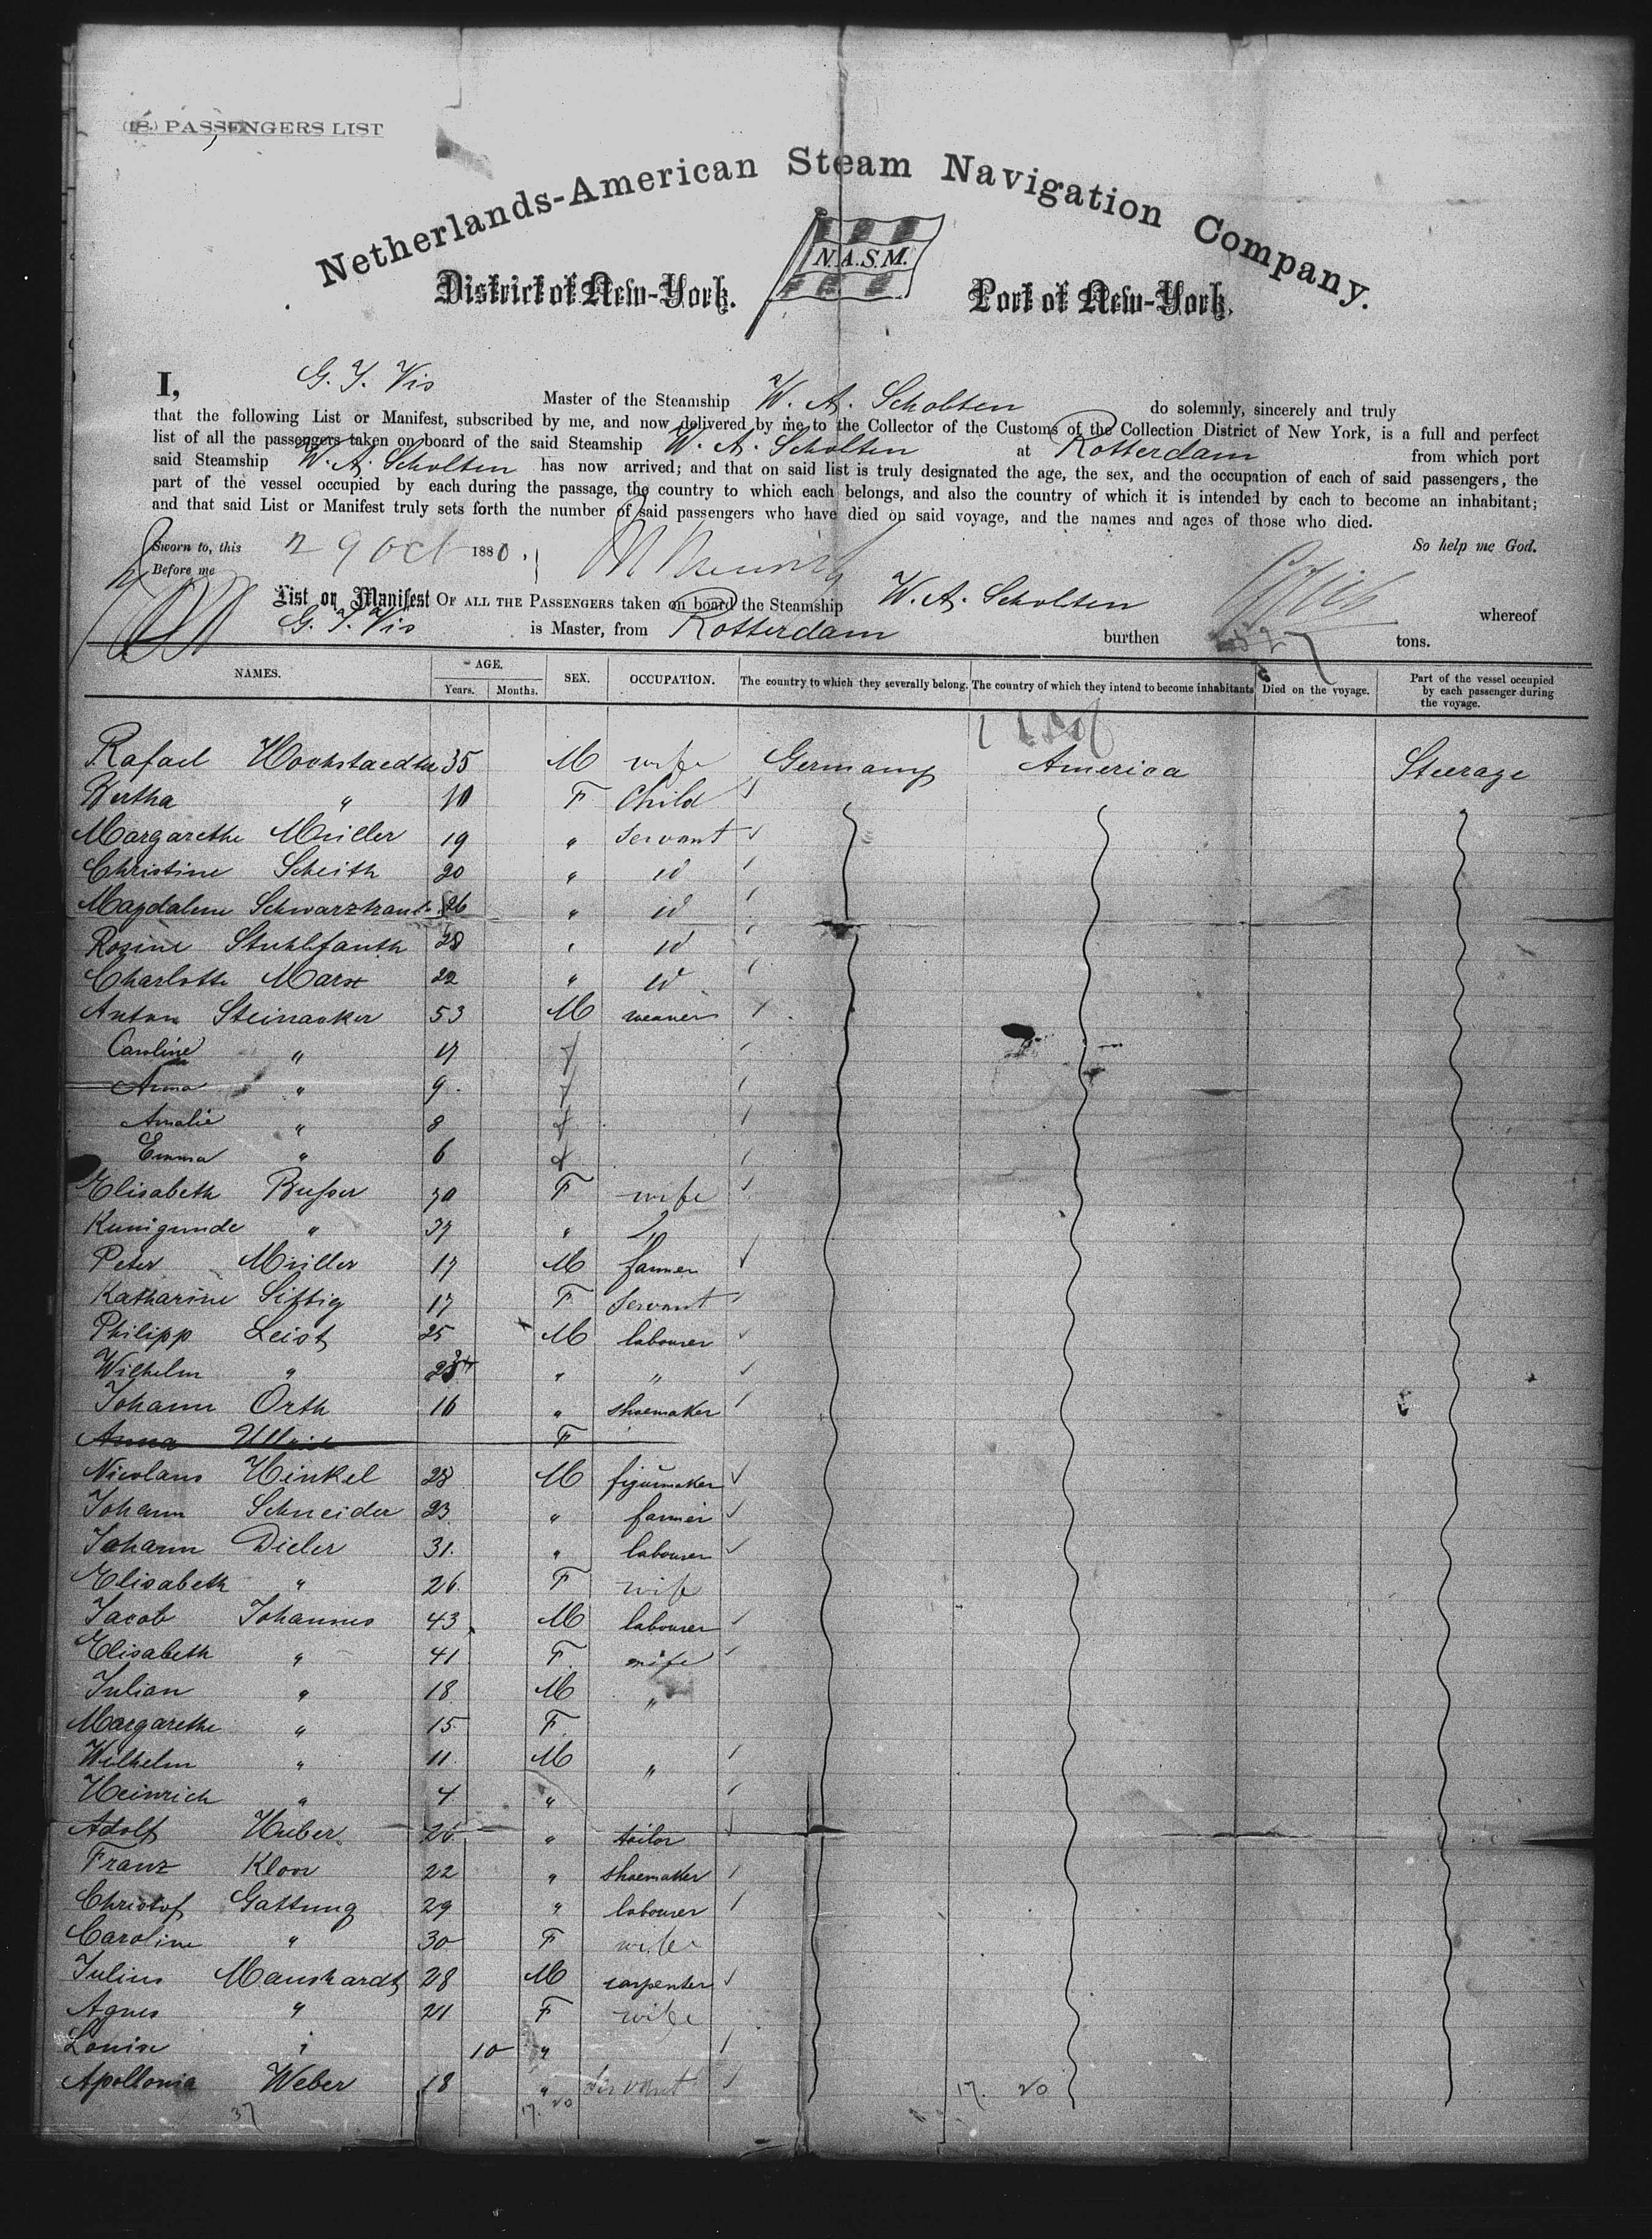 (18.) PASSENGERS LIST
Netherlands-American Steam Navigation Company.
N.A.S.M.
District of New-York. Port of New-York.
I, G. J. Vis Master of the Steamship W. A. Scholten do solemnly, sincerely and truly
that the following List or Manifest, subscribed by me, and now delivered by me to the Collector of the Customs of the Collection District of New York, is a full and perfect
list of all the passengers taken on board of the said Steamship W. A. Scholten at Rotterdam from which port
said Steamship W. A. Scholten has now arrived; and that on said list is truly designated the age, the sex, and the occupation of each of said passengers, the
part of the vessel occupied by each during the passage, the country to which each belongs, and also the country of which it is intended by each to become an inhabitant;
and that said List or Manifest truly sets forth the number of said passengers who have died on said voyage, and the names and ages of those who died.
Sworn to, this 29 Oct 1880. So help me God.
Before me
List or Manifest OF ALL THE PASSENGERS taken on board the Steamship W. A. Scholten whereof
G. J. Vis is Master, from Rotterdam burthen tons.
NAMES. AGE. Years. Months. SEX. OCCUPATION. The country to which they severally belong. The country of which they intend to become inhabitants Died on the voyage. Part of the vessel occupied by each passenger during the voyage.
Rafael Hochstaedter 35 M wife Germany America Steerage
Bertha " 10 F Child
Margarethe Müller 19 " Servant
Christine Scheith 20 " id
Magdalene 26 " id
Rosine Stuhlfauth 28 " id
Charlotte Marx 22 " id
Anton Steinacker 53 M weaver
Caroline " 17 f
Anna " 9 f
Amalie " 8 f
Emma " 6 f
Elisabeth Busser 70 F wife
Kunigunde " 37 "
Peter Müller 17 M farmer
Katharine Sittig 17 F Servant
Philipp Leist 25 M labourer
Wilhelm " " "
Johann Orth 16 " shoemaker
Anna Ullrich F
Nicolaus Hinkel 28 M figurmaker
Johann Schneider 23 " farmer
Johann Dieler 31 " labourer
Elisabeth " 26 F wife
Jacob Johannes 43 M labourer
Elisabeth " 41 F wife
Julian " 18 M "
Margarethe " 15 F
Wilhelm " 11 M "
Heinrich " 4 "
Adolf Huber 26 " tailor
Franz Kloor 22 " shoemaker
Christof Gattung 29 " labourer
Caroline " 30 F wife
Julius Manshardt 28 M carpenter
Agnes " 21 F wife
Louise " 10 "
Apollonia Weber 18 " Servant
37 17. 20 17. 20